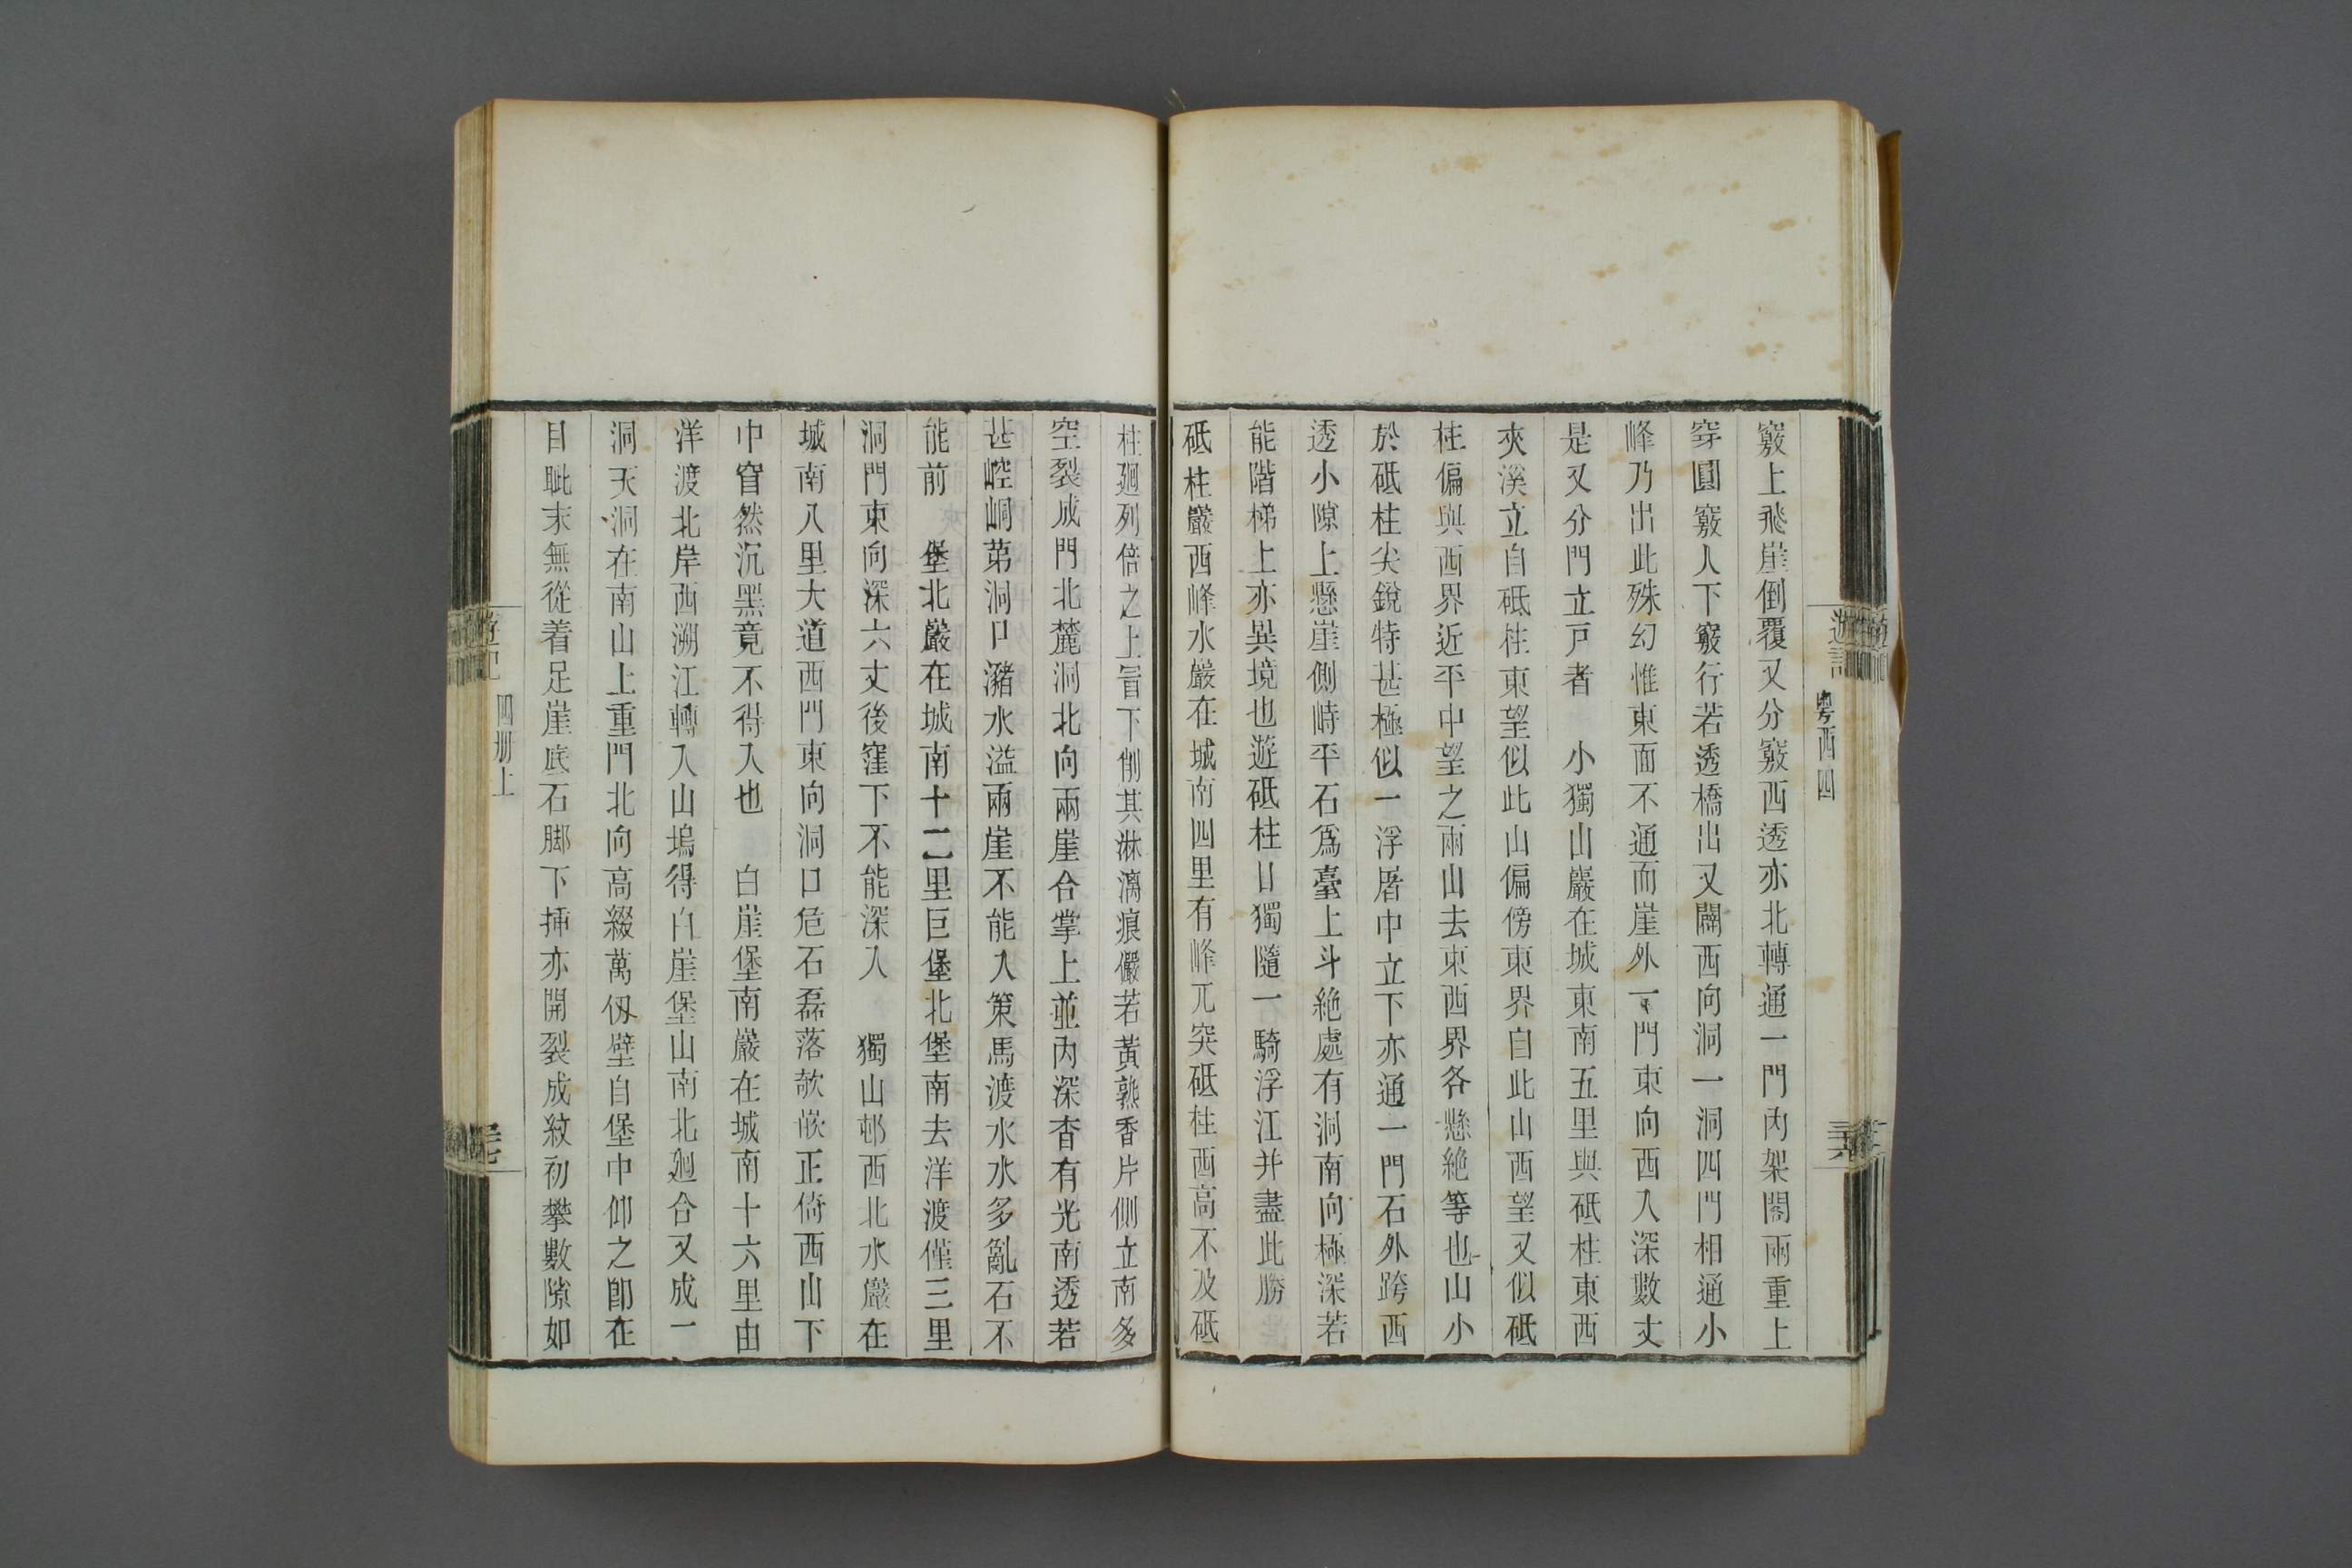 遊記
粵西四
竅上飛崖倒覆又分竅西透亦北轉通一門內架閣兩重上
穿圓竅人下竅行若透橋出又闢西向洞一洞四門相通小
峰乃出此殊幻惟東面不通而崖外一門東向西入深數丈
是又分門立戸者　小獨山巖在城東南五里與砥柱東西
夾溪立自砥柱東望似此山偏傍東界自此山西望又似砥
柱偏與西界近平中望之兩山去東西界各懸絶等也山小
於砥柱尖銳特甚極似一浮屠中立下亦通一門石外跨西
透小隙上懸崖側峙平石爲臺上斗絶處有洞南向極深若
能階梯上亦異境也遊砥柱日獨隨一騎浮江并盡此勝
砥柱巖西峰水巖在城南四里有峰兀突砥柱西高不及砥
柱廻列倍之上冒下削其淋漓痕儼若黃熟香片側立南多
空裂成門北麓洞北向兩崖合掌上並內深杳有光南透若
甚崆峒第洞口瀦水溢兩崖不能入策馬渡水水多亂石不
能前　堡北巖在城南十二里巨堡北堡南去洋渡僅三里
洞門東向深六丈後窪下不能深入　獨山邨西北水巖在
城南八里大道西門東向洞口危石磊落欹嵌正倚西山下
中窅然沉黑竟不得入也　白崖堡南巖在城南十六里由
洋渡北岸西溯江轉入山塢得白崖堡山南北廻合又成一
洞天洞在南山上重門北向高綴萬仭壁自堡中仰之卽在
目眦末無從着足崖底石脚下揷亦開裂成紋初攀數隙如
遊記
四册上